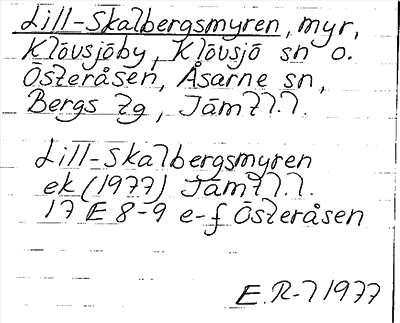 Lill-Skalbergsmyren, myr,
Klövsjöby, Klövsjö sn o.
Österåsen, Åsarne sn,
Bergs tg, Jämtl.l.
Lill-Skalbergsmyren
ek (1977) Jämtl.l.
17 E 8-9 e-f Österåsen
E.R-l 1977